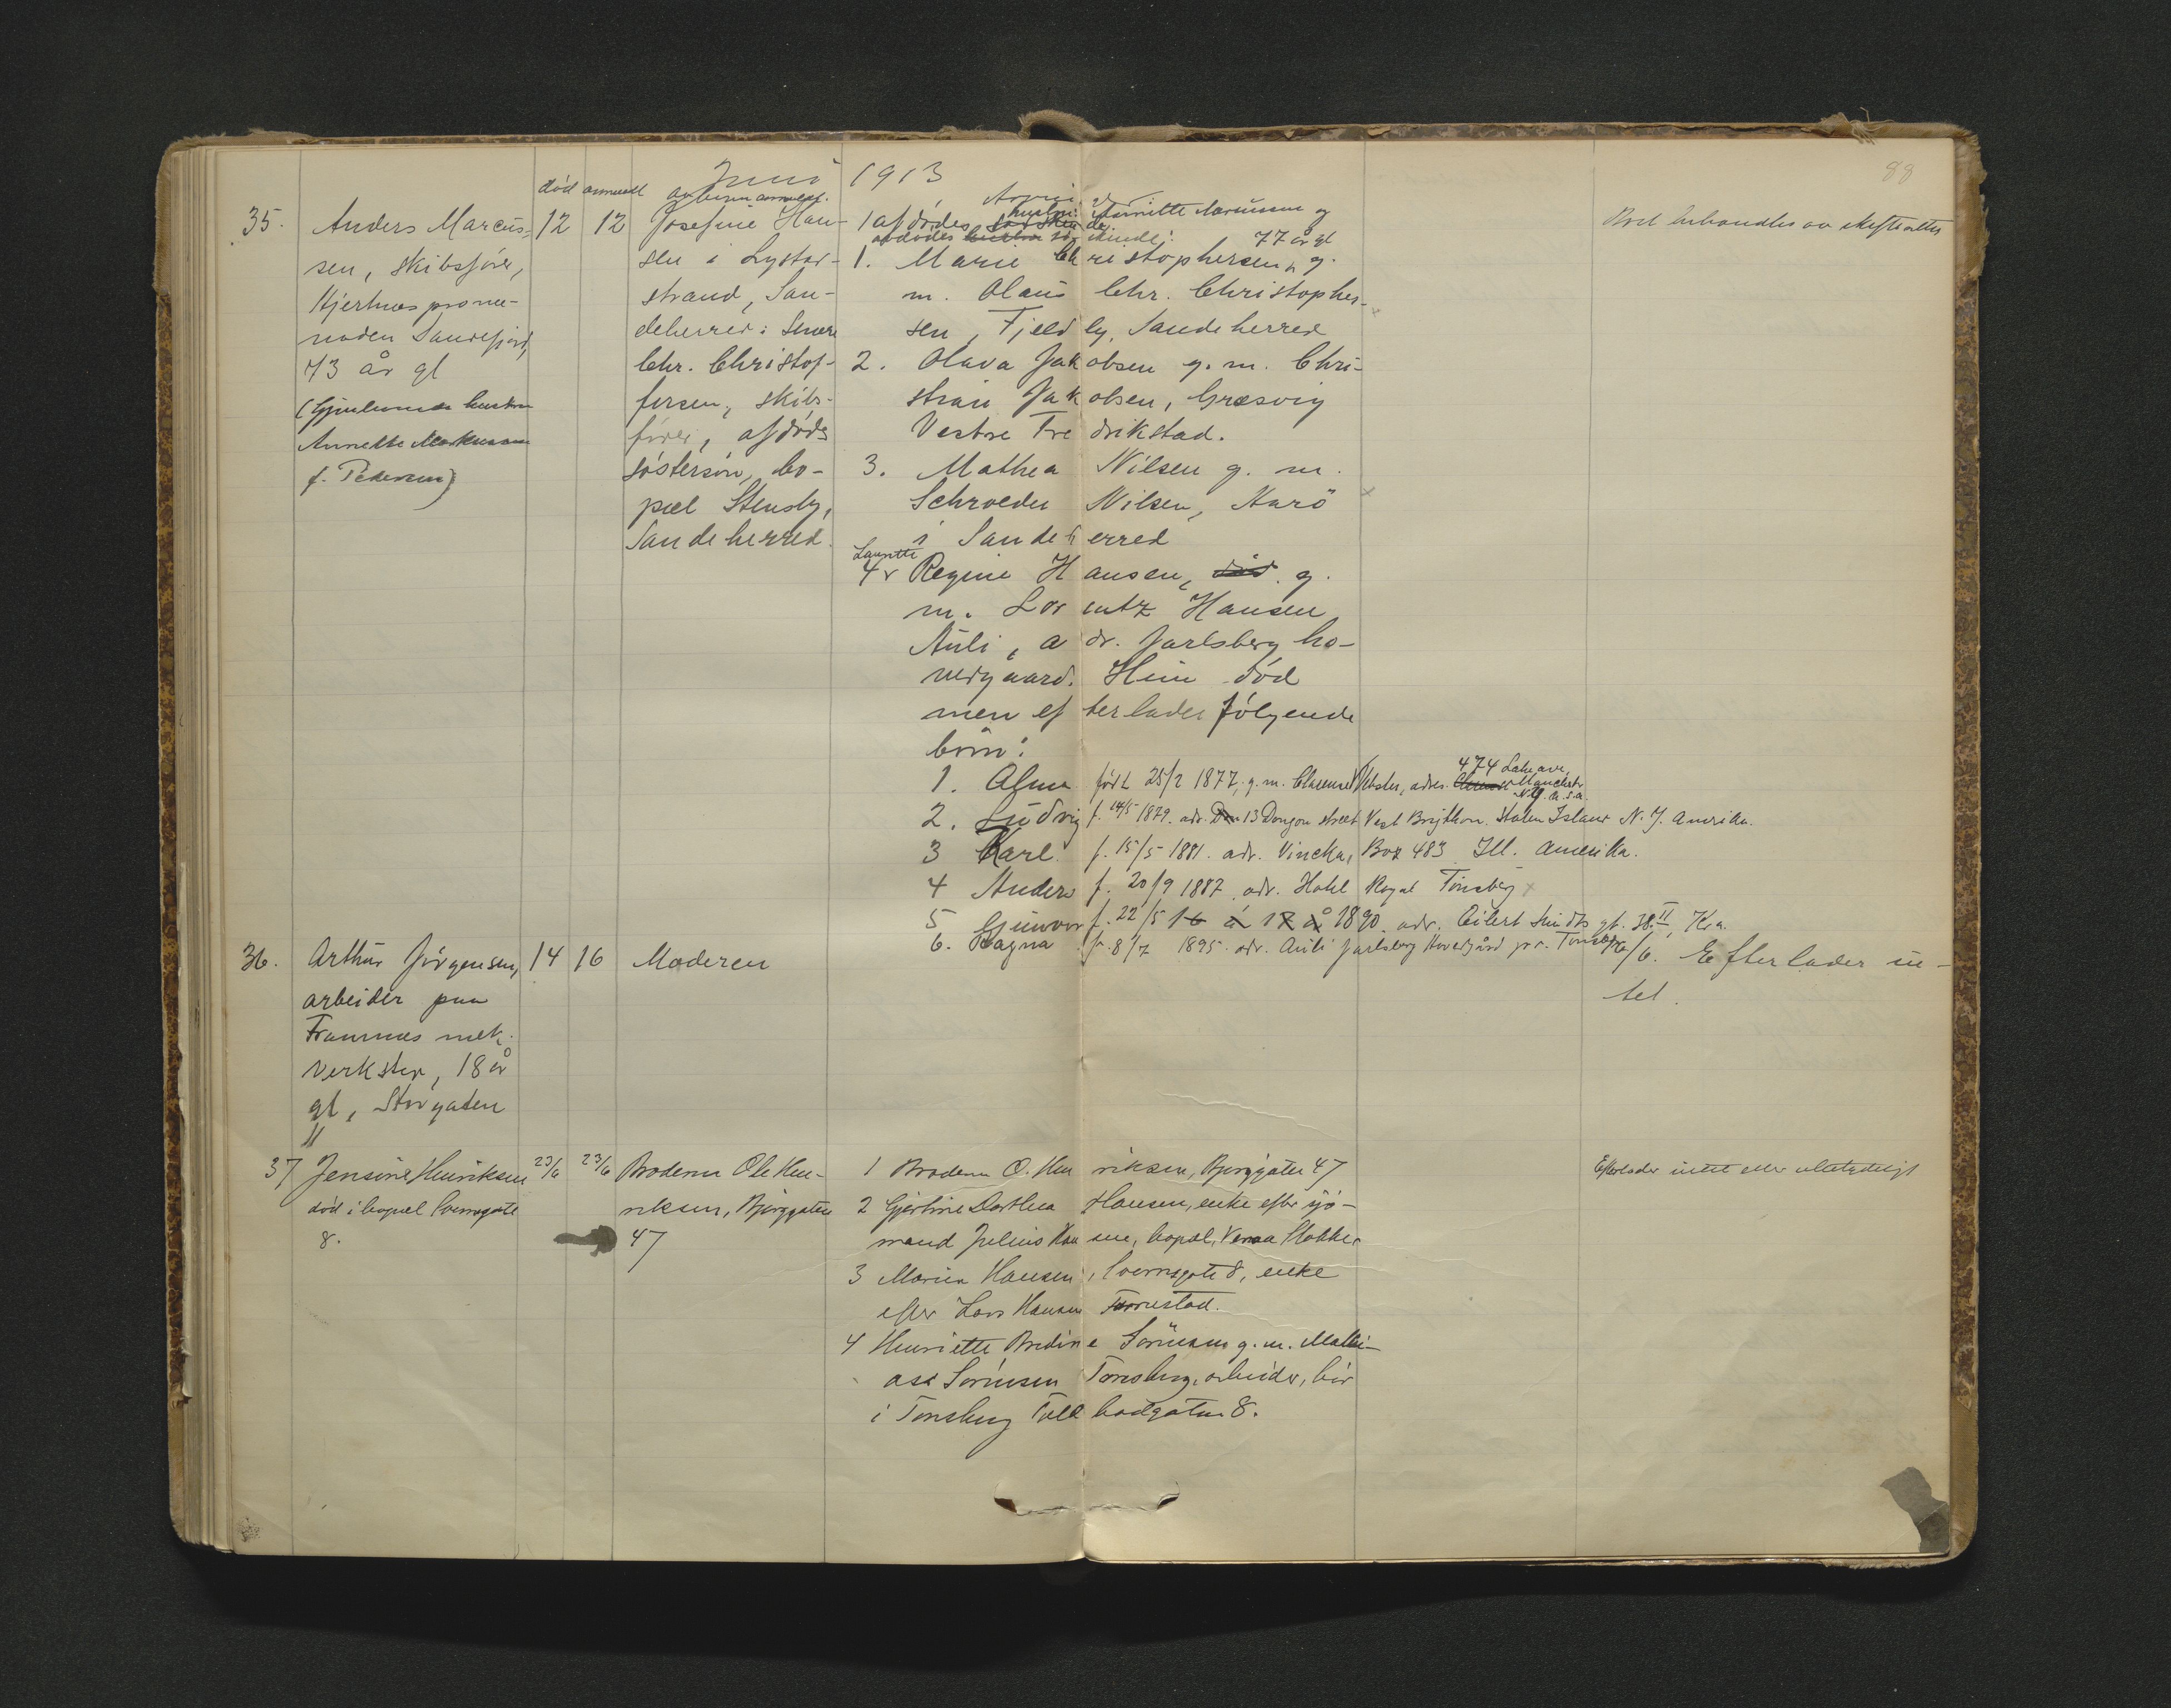 Juni 1913
88
død anmeldt av hvem anmeldt. Arvinger
35.
Anders Marcus-
sen, skibsfører,
Hjertnæs prome-
naden Sandefjord,
73 år gl
(Gjenlevende hustru
Annette Markussen
f. Pedersen)
12
12
Josefine Han-
sen i Lystad-
strand, San-
deherred: Senere
Chr. Christof-
fersen, skibs-
fører, afdødes
søstersøn, bo-
pæl Stensby,
Sandeherred.
hustru: Annette Marcussen og
1 afdødes søsken de
afdødes hustru sø- skende: 77 år gl
1. Marie Christophersen, g.
m. Olaus Chr. Christopher-
sen, Fjeldly, Sandeherred
2. Olava Jakobsen g. m. Chri-
stian Jakobsen, Græsvig
Vestre Fredrikstad.
3. Mathea Nilsen g. m.
Schroeder Nilsen, Karö
i Sandeherred
Laurette
4 Regine Hansen, død. g.
m. Lorentz Hansen
Auli, adr. Jarlsberg ho-
vedgaard. Hun død
men efterlader følgende
børn:
1. Alma født 25/2 1877, g. m. Clarence adres. 474 Lake ave,
Manchester
N.Y. U.S.A.
2. Ludvig f. 14/5 1879. adr. 13 Dongon street Vest Brigthon. Staten Island N.Y. Amerika.
3 Karl f. 15/5 1881. adr. Box 483 Ill. Amerika.
4 Anders f. 20/9 1887 adr. Hotel Royal Tönsberg
5 Gunvor f. 22/5 16 á 17 å 1890. adr. Eilert Sundts gt. 38 II, Kr.a.
6. Ragna f. 8/7 1895. adr. Auli Jarlsberg Hovedgård pr. Tönsberg
Boet behandles av skifteretten
36.
Arthur Jörgensen,
arbeider paa
Framnæs mek.
verksted, 18 år
gl, Storgaten
11
14
16
Moderen
16/6. Efterlader in-
tet.
37
Jensine Henriksen
død i bopæl
8.
23/6
23/6
Broderen Ole Hen-
riksen, Bjerggaten
47
1 Broderen O. Henriksen, Bjerggaten 47
2 Gjertine Dorthea Hansen, enke efter sjö-
mand Julius Hansen, bopæl, Stokke
3 Maren Hansen, 8, enke
efter Lars Hansen
4 Henriette Bredine Sörensen g. m. Mathi-
ass Sörensen Tönsberg, arbeider, bor
i Tönsberg Tollbodgaten 8.
Efterlader intet eller ubetydeligt